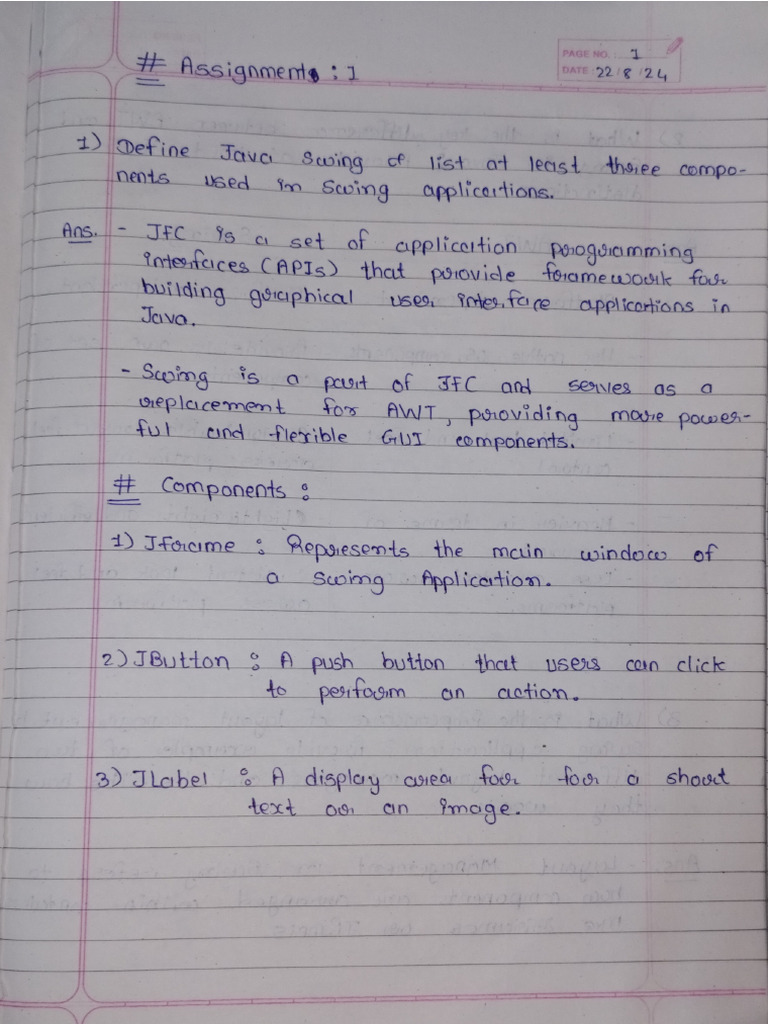 PAGE NO.: 1
DATE: 22/8/24
# Assignment : 1
1) Define Java Swing & list at least three compo-
nents used in Swing applications.
Ans. - JFC is a set of application programming
interfaces (APIs) that provide framework for
building graphical user interface applications in
Java.
- Swing is a part of JFC and serves as a
replacement for AWT, providing more power-
ful and flexible GUI components.
# Components :
1) Jframe : Represents the main window of
a Swing Application.
2) JButton : A push button that users can click
to perform an action.
3) JLabel : A display area for for a short
text or an image.